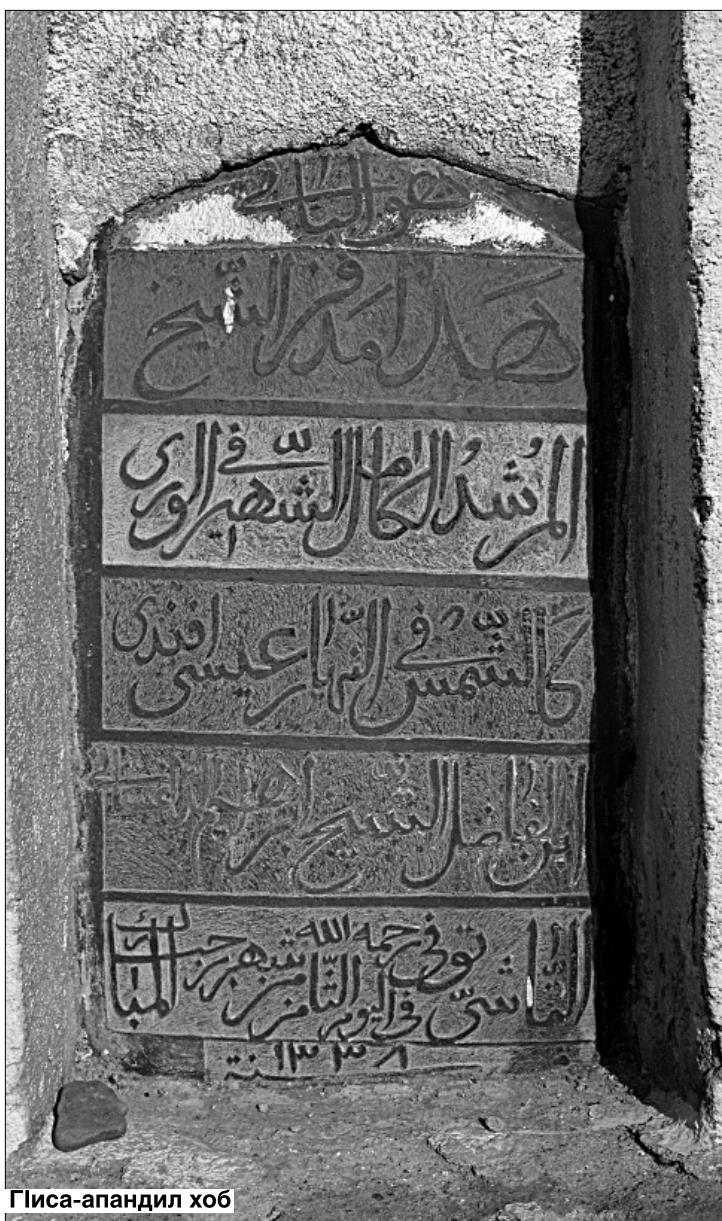 هو الباقي
هذا مدفن الشيخ
المرشد الكامل الشهير في الورى
كالشمس في النهار عيسى افندى
ابن الفاضل الشيخ ابراهيم
الناشي توفي رحمه الله في اليوم الثامن من شهر رجب المبارك
سنة ١٣٣٨
ГӀиса-апандил хоб